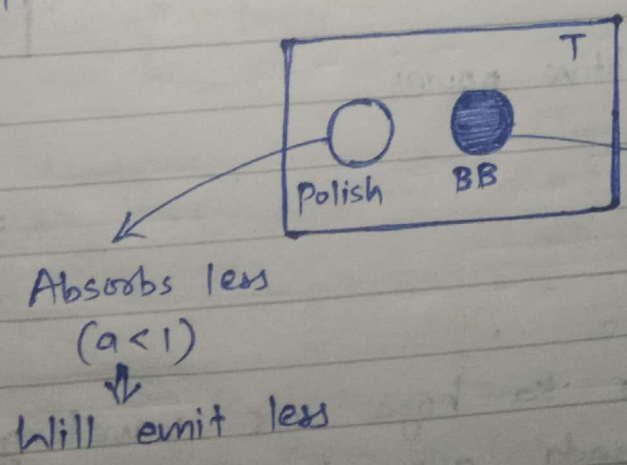 T
Polish
BB
Absorbs less
(a<1)
⇓
Will emit less